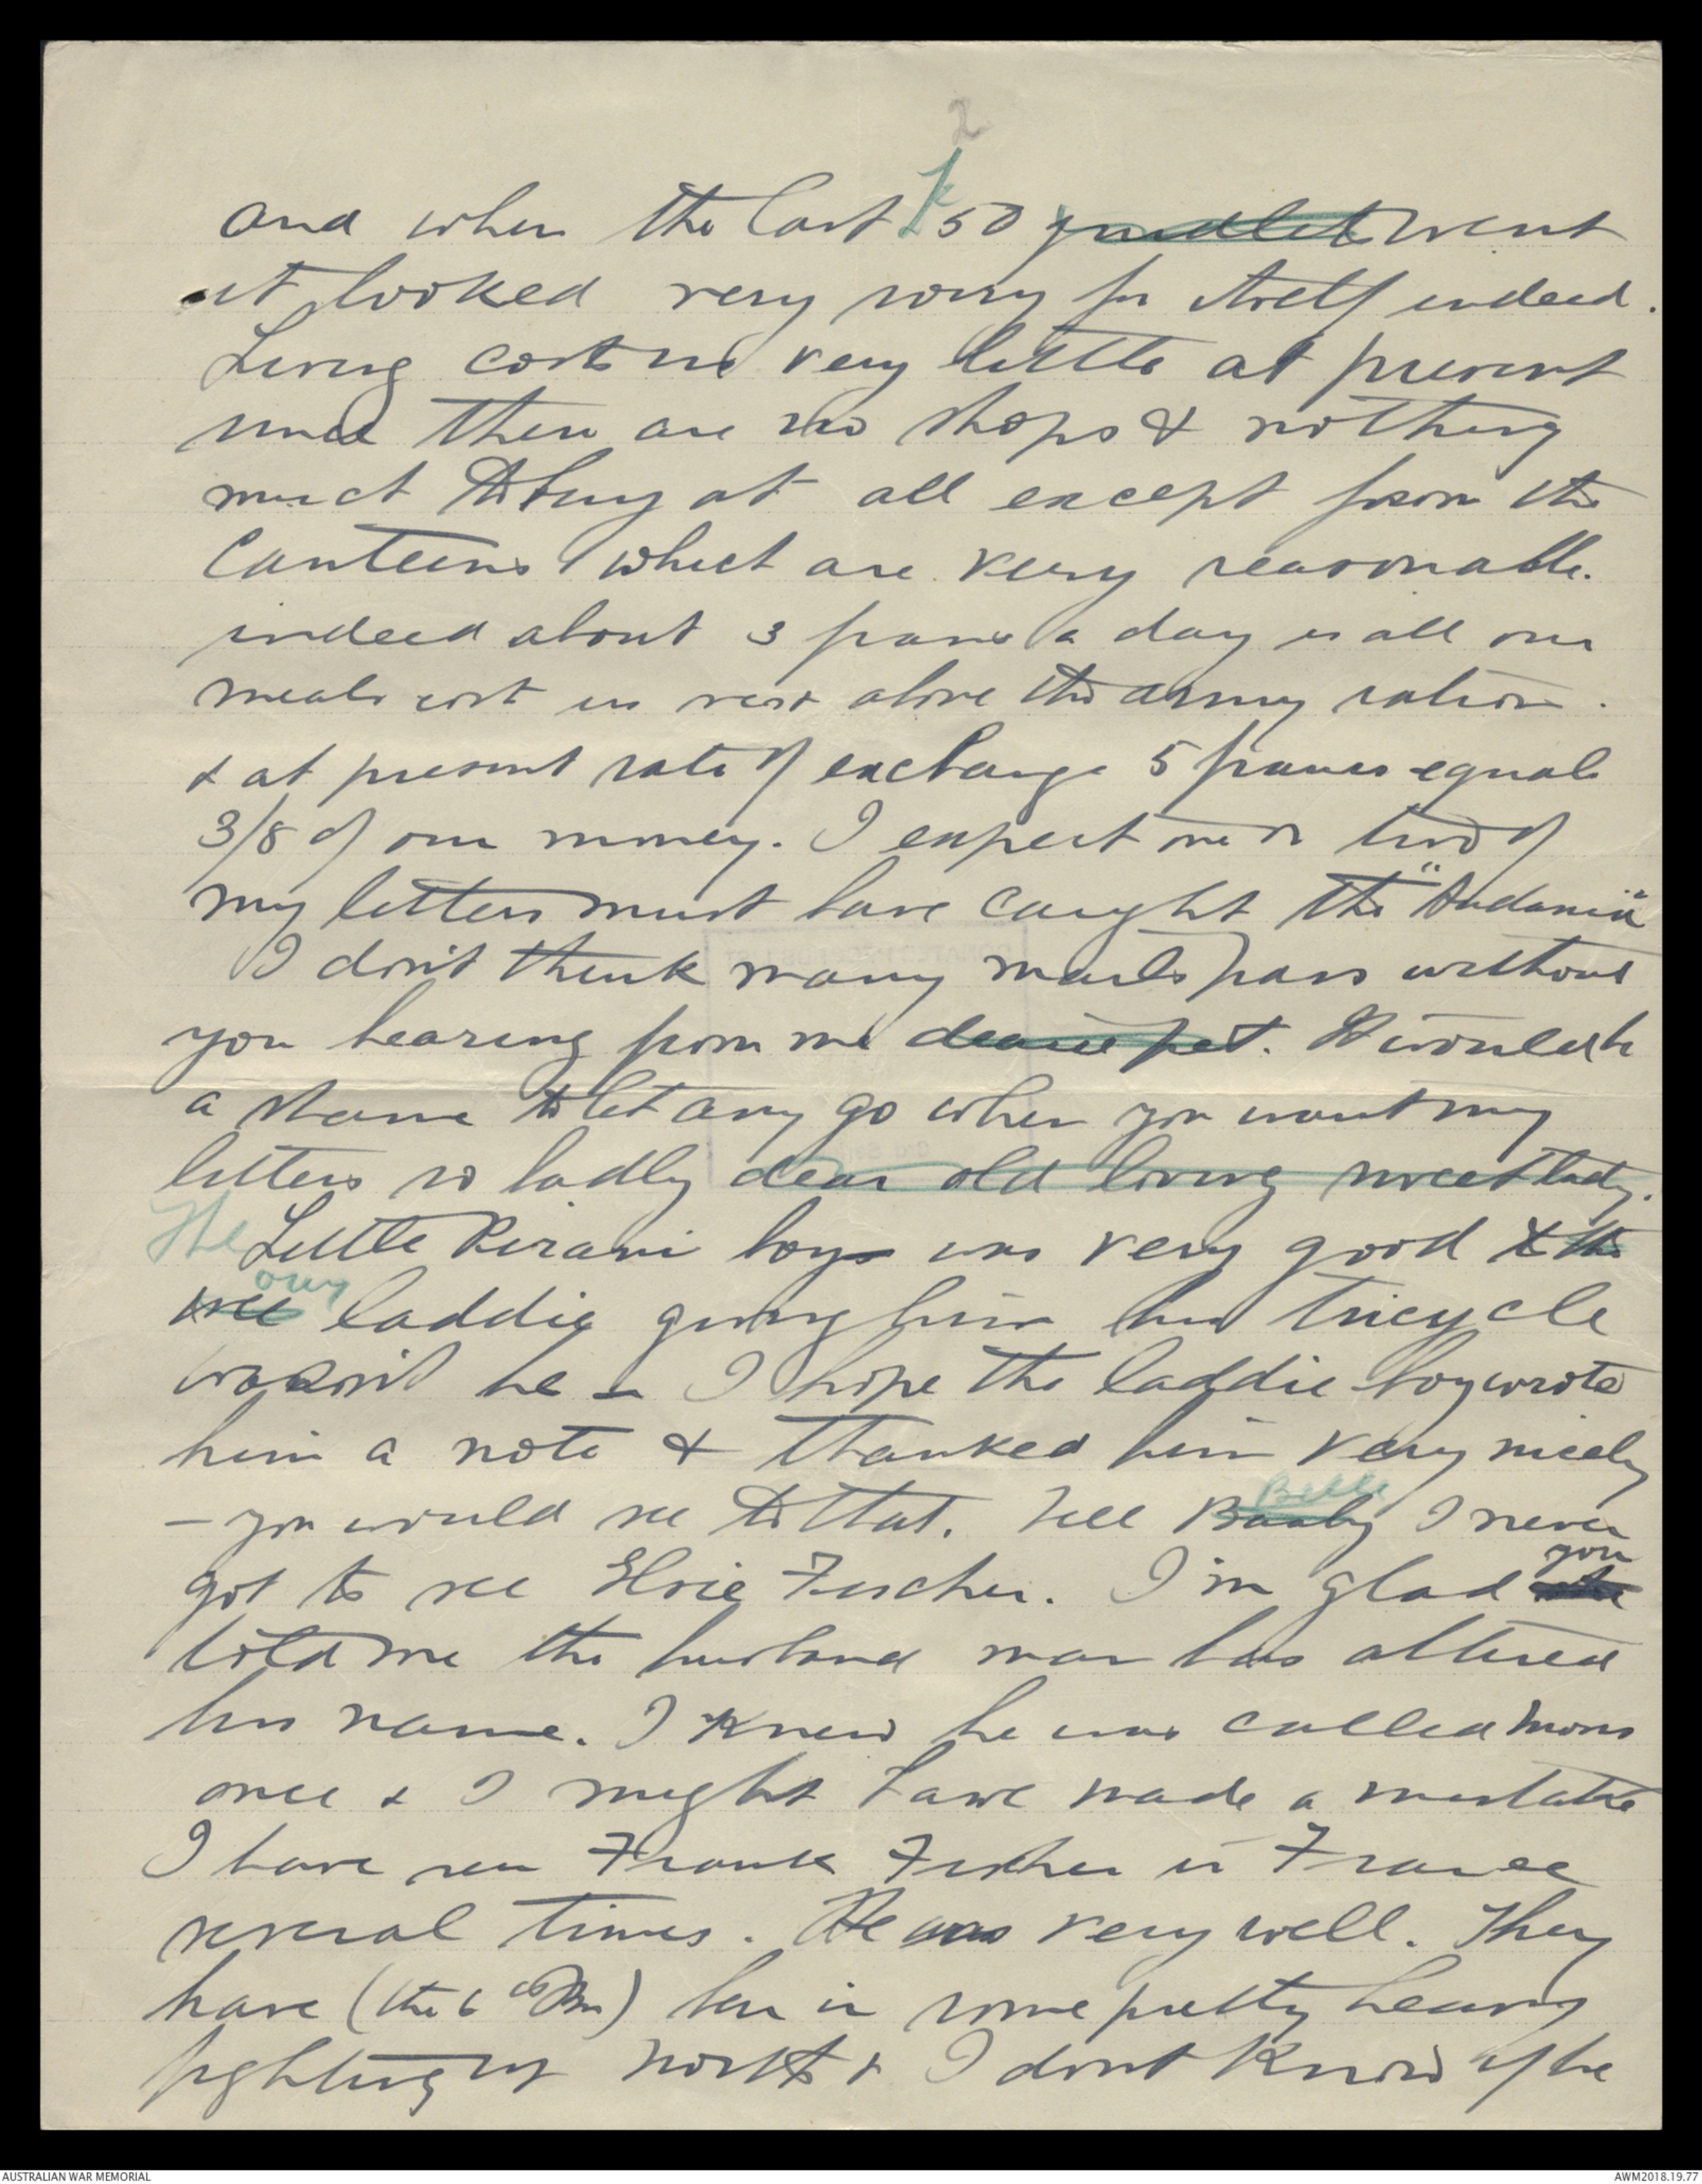 2
and when the last £50 went
it looked very sorry for itself indeed.
Living costs us very little at present
since there are no shops & nothing
much to buy at all except from the
Canteens which are very reasonable.
indeed about 3 francs a day is all our
meals cost us now above the army ration.
& at present rate of exchange 5 francs equals
3/8 of our money. I expect one or two of
my letters must have caught the "
I don't think many mails pass without
you hearing from me dearie pet. It would be
a shame to let any go when you want my
letters so badly dear old loving sweet lady.
The Little Pirani boy was very good to the
our
wee laddie giving him his tricycle
wasn't he - I hope the laddie boy wrote
him a note & thanked him very nicely
Belle
- you would see to that. Tell I never
you
got to see Elsie Fischer. I'm glad
told me the husband man has altered
his name. I knew he was called
once & I might have made a mistake
I have seen Frank Fisher in France
several times. He was very well. They
have (the 6th Bn) been in some pretty heavy
fighting up North & I dont know if he
AUSTRALIAN WAR MEMORIAL
AWM2018.19.77